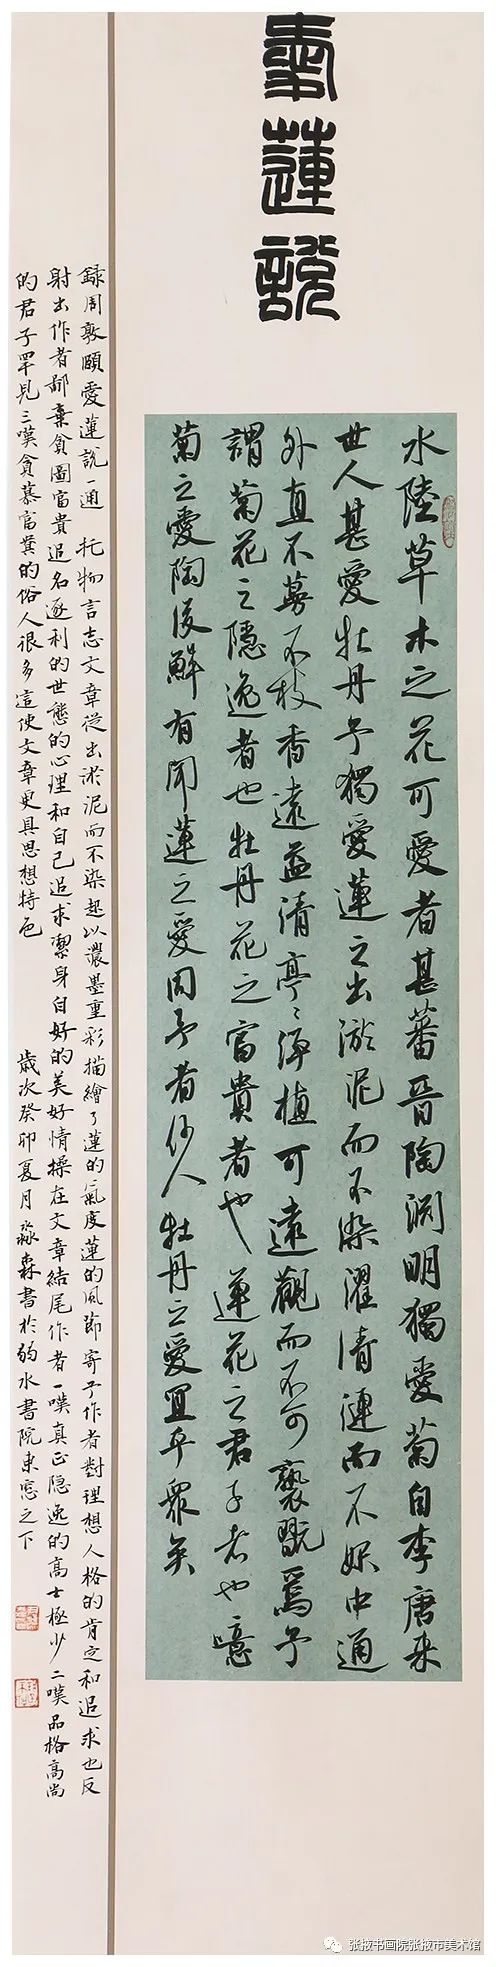 愛蓮說
水陸草木之花可愛者甚蕃晉陶淵明獨愛菊自李唐来
世人甚愛牡丹予獨愛蓮之出淤泥而不染濯清漣而不妖中通
外直不蔓不枝香遠益清亭〻淨植可遠觀而不可褻翫焉予
謂菊花之隐逸者也牡丹花之富貴者也蓮花之君子者也噫
菊之愛陶後鮮有聞蓮之愛同予者何人牡丹之愛宜乎眾矣
録周敦頤愛蓮說一通 托物言志文章從出淤泥而不染起以濃墨重彩描繪了蓮的氣度蓮的風節寄予作者對理想人格的肯定和追求也反
射出作者鄙棄貪圖富貴追名逐利的世態的心理和自己追求潔身自好的美好情操在文章結尾作者一嘆真正隐逸的高士極少二嘆品格高尚
的君子罕見三嘆貪慕富貴的俗人很多這使文章更具思想特色 歲次癸卯夏月淼森書於弱水書院東窓之下
张掖书画院张掖市美术馆